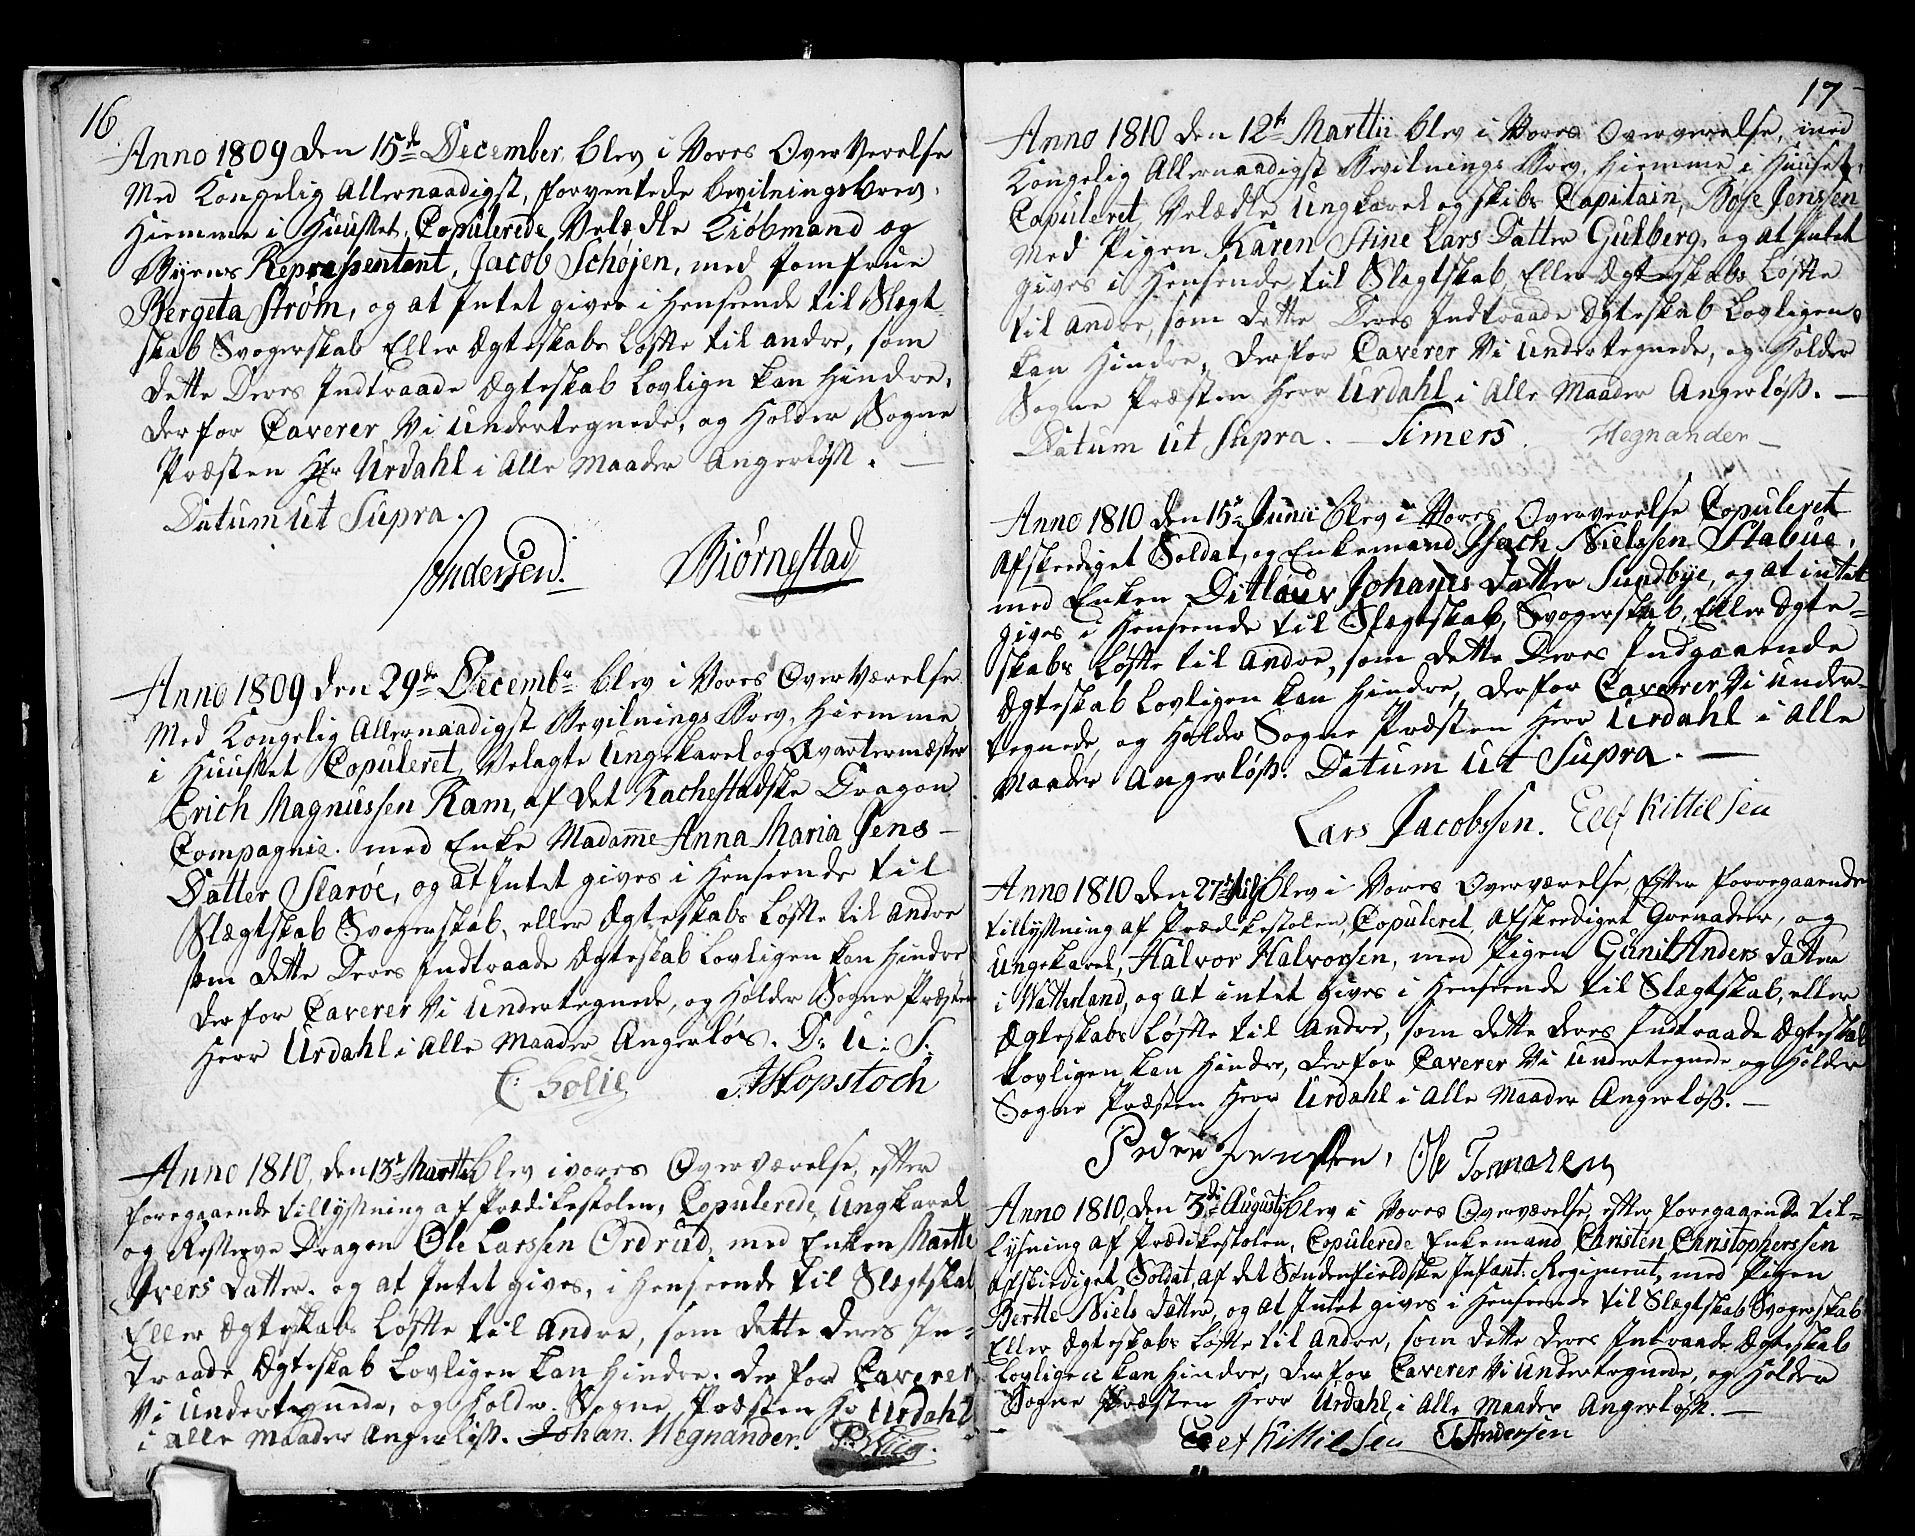 16
Anno 1809 den 15de December, blev i Vores OverVerelse
Med Kongelig Allernaadigst, forventede bevilningsbrev,
Hiemme i Huusset, Copulerede Velædle Kiøbmand og
Byens Repræssentant, Jacob Schøjen, med Jomfrue
Bergeta Strøm, og at Intet gives i Henseende til Slægt-
skab Svogerskab Eller Ægteskabs Løfte til andre, som
dette Deres Indtraade Ægteskab Lovlign kan Hindre,
derfor Caverer Vi undertegnede, og Holder Sogne
Præsten Hr Urdahl i Alle Maader Angerløss.
Datum ut Supra.
Andersen. Biørnestad
Anno 1809 den 29de Decembr blev i Vores OverVærelse
Med Kongelig Allernaadigst Bevilnings Brev, Hiemme
i Huusset Copuleret, Velagte Ungekarel og Qvartermæster
Erich Magnussen Ram, af det Rachestadske Dragon
Compagnie. med Enke Madame Anna Maria Jens-
Datter Slaröe, og at Intet gives i Henseende til
Slægtskab Svogerskab, eller Ægteskabs Løfte til Andre
som dette Deres Indtraade Ægteskab Lovligen kan Hindre
derfor Caverer Vi undertegnede, og Holder Sogne Præsten
Herr Urdahl i Alle Maader Angerløs. D: U: S:
C: Solie A Hopstoch
Anno 1810, den 13de Martti blev i vores OverVærelse, efter
foregaaende tillyssning af Prædikestolen, Copulerede, Ungkarel
og Resserve Dragon Ole Larssen Ordrud, med Enken Martte
Ivers Datter. og at Intet gives, i Henseende til Slægtskab
Eller Ægteskabs Løfte til Andre, som dette deres In-
traade Ægteskab Lovligen kan Hindre. derfor Caverer
Vi undertegnede, og Holder Sogne Præsten Hr Urdahl
i Alle Maader Angerløss. Johan. Hegnander.
17
Anno 1810 den 12te Marttii blev i Vores Oververelse, med
Kongelig Allernaadigst Bevilnings Brev, Hiemme i Huuset,
Copuleret, Velædle Ungkarel og skibs Capitain, Boje Jenssen
Med Pigen Karen Stine Lars Datter Gulberg, og at Intet
gives i Henseende til Slægtskab Eller Ægteskabs Løfte
til andre, som dette Deres Indtraade Ægteskab Lovligens
kan Hindre, derfor Caverer Vi undertegnede, og Holder
Sogne Præsten Herr Urdahl i Alle Maader Angerløss.
Datum ut Supra. — Simers. Hegnander
Anno 1810 den 15de Junii blev i Vores Oververelse Copuleret
Afskediget Soldat, og Enkemand, Isach Nielssen Stabue,
med Enken Ditlauv Johanes Datter Sundbye, og at intet
gives i Henseende til Slægtskab, Svogerskab, Eller Ægte-
skabs Løfte til Andre, som dette Deres Indgaaende
Ægteskab Lovligen kan Hindre, derfor Caverer Vi under-
tegnede, og Holder Sogne Præsten Herr Urdahl i Alle
Maader Angerløss. Datum ut Supra.
Lars Jacobssen. Ellef Kittelsen
Anno 1810 den 27de Julj blev i Vores Overværelse Efter forregaaende
tillyssning af Prædikestolen, Copuleret, afskerdiget Grenadeer, og
Ungekarel, Halvor Halvorssen, med Pigen Gunil Anders Datter
i Watterland, og at intet gives i Henseende til Slægtskab, eller
Ægteskabs Løfte til Andre, som dette deres Indtraade Ægteskab
Lovligen kan Hindre, derfor Caverer Vi undertegnede og Holder
Sogne Præsten Herr Urdahl i Alle Maader Angerløss.
Peder Jenssen, Ole Tommasen
Anno 1810, den 3die Augusti blev i Vores Overværelse, efter foregaaende til-
lysning af Prædikestolen, Copulerede Enkemand Christen Christopherssen
Afskiediget Soldat, af det Søndenfieldske Infant: Regiment, med Pigen
Berthe Niels Datter, og at Intet gives i Henseende til Slægtskab Svogerskab
Eller Ægteskabs Løfte til Andre, som dette deres Intraade Ægteskab
Lovligen kan Hindre, derfor Caverer Vi undertegnede, og Holder
Sogne Præsten Herr Urdahl, i Alle Maader Angerløss.
Ellef Kittelsen T Andersen